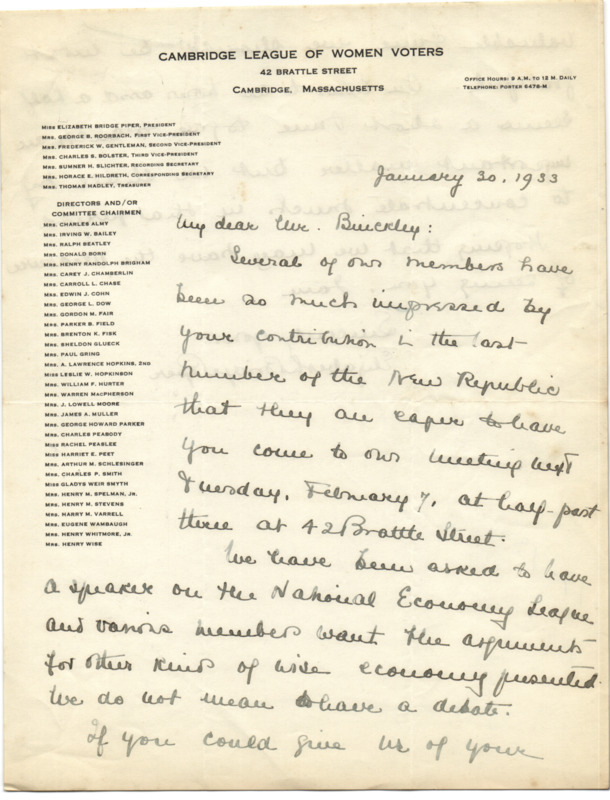 CAMBRIDGE LEAGUE OF WOMEN VOTERS
42 BRATTLE STREET
CAMBRIDGE, MASSACHUSETTS
OFFICE HOURS: 9 A.M. TO 12 M. DAILY
TELEPHONE: PORTER 5476-M
MISS ELIZABETH BRIDGE PIPER, PRESIDENT
MRS. GEORGE B. ROORBACH, FIRST VICE-PRESIDENT
MRS. FREDERICK W. GENTLEMAN, SECOND VICE-PRESIDENT
MRS. CHARLES S. BOLSTER, THIRD VICE-PRESIDENT
MRS. SUMNER H. SLICHTER, RECORDING SECRETARY
MRS. HORACE E. HILDRETH, CORRESPONDING SECRETARY
MRS. THOMAS HADLEY, TREASURER
DIRECTORS AND/OR
COMMITTEE CHAIRMEN
MRS. CHARLES ALMY
MRS. IRVING W. BAILEY
MRS. RALPH BEATLEY
MRS. DONALD BORN
MRS. HENRY RANDOLPH BRIGHAM
MRS. CAREY J. CHAMBERLIN
MRS. CARROLL L. CHASE
MRS. EDWIN J. COHN
MRS. GEORGE L. DOW
MRS. GORDON M. FAIR
MRS. PARKER B. FIELD
MRS. BRENTON K. FISK
MRS. SHELDON GLUECK
MRS. PAUL GRING
MRS. A. LAWRENCE HOPKINS, 2ND
MISS LESLIE W. HOPKINSON
MRS. WILLIAM F. HURTER
MRS. WARREN MACPHERSON
MRS. J. LOWELL MOORE
MRS. JAMES A. MULLER
MRS. GEORGE HOWARD PARKER
MRS. CHARLES PEABODY
MISS RACHEL PEASLEE
MISS HARRIET E. PEET
MRS. ARTHUR M. SCHLESINGER
MRS. CHARLES P. SMITH
MISS GLADYS WEIR SMYTH
MRS. HENRY M. SPELMAN, JR.
MRS. HENRY M. STEVENS
MRS. HARRY M. VARRELL
MRS. EUGENE WAMBAUGH
MRS. HENRY WHITMORE, JR.
MRS. HENRY WISE
January 30, 1933
My dear Mr. Binckley:
Several of our members have
been so much impressed by
your contribution in the last
number of the New Republic
that they are eager to have
you come to our meeting next
Tuesday, February 7, at half-past
three at 42 Brattle Street.
We have been asked to have
a speaker on the National Economy League
and various members want the arguments
for other kinds of wise economy presented.
We do not mean to have a debate.
If you could give us of your